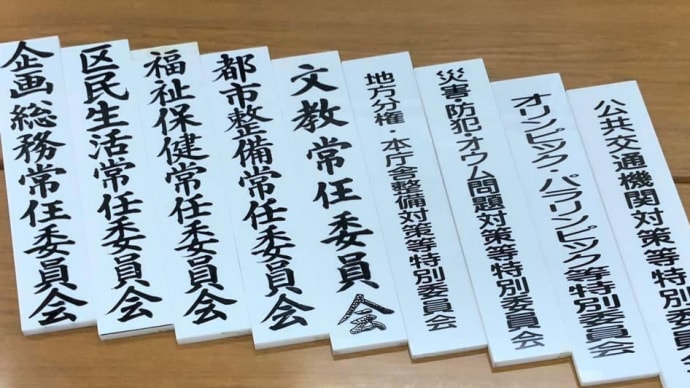 企画総務常任委員会
区民生活常任委員会
福祉保健常任委員会
都市整備常任委員会
文教常任委員会
地方分権・本庁舎整備対策等特別委員会
災害・防犯・オウム問題対策等特別委員会
オリンピック・パラリンピック等特別委員会
公共交通機関対策等特別委員会